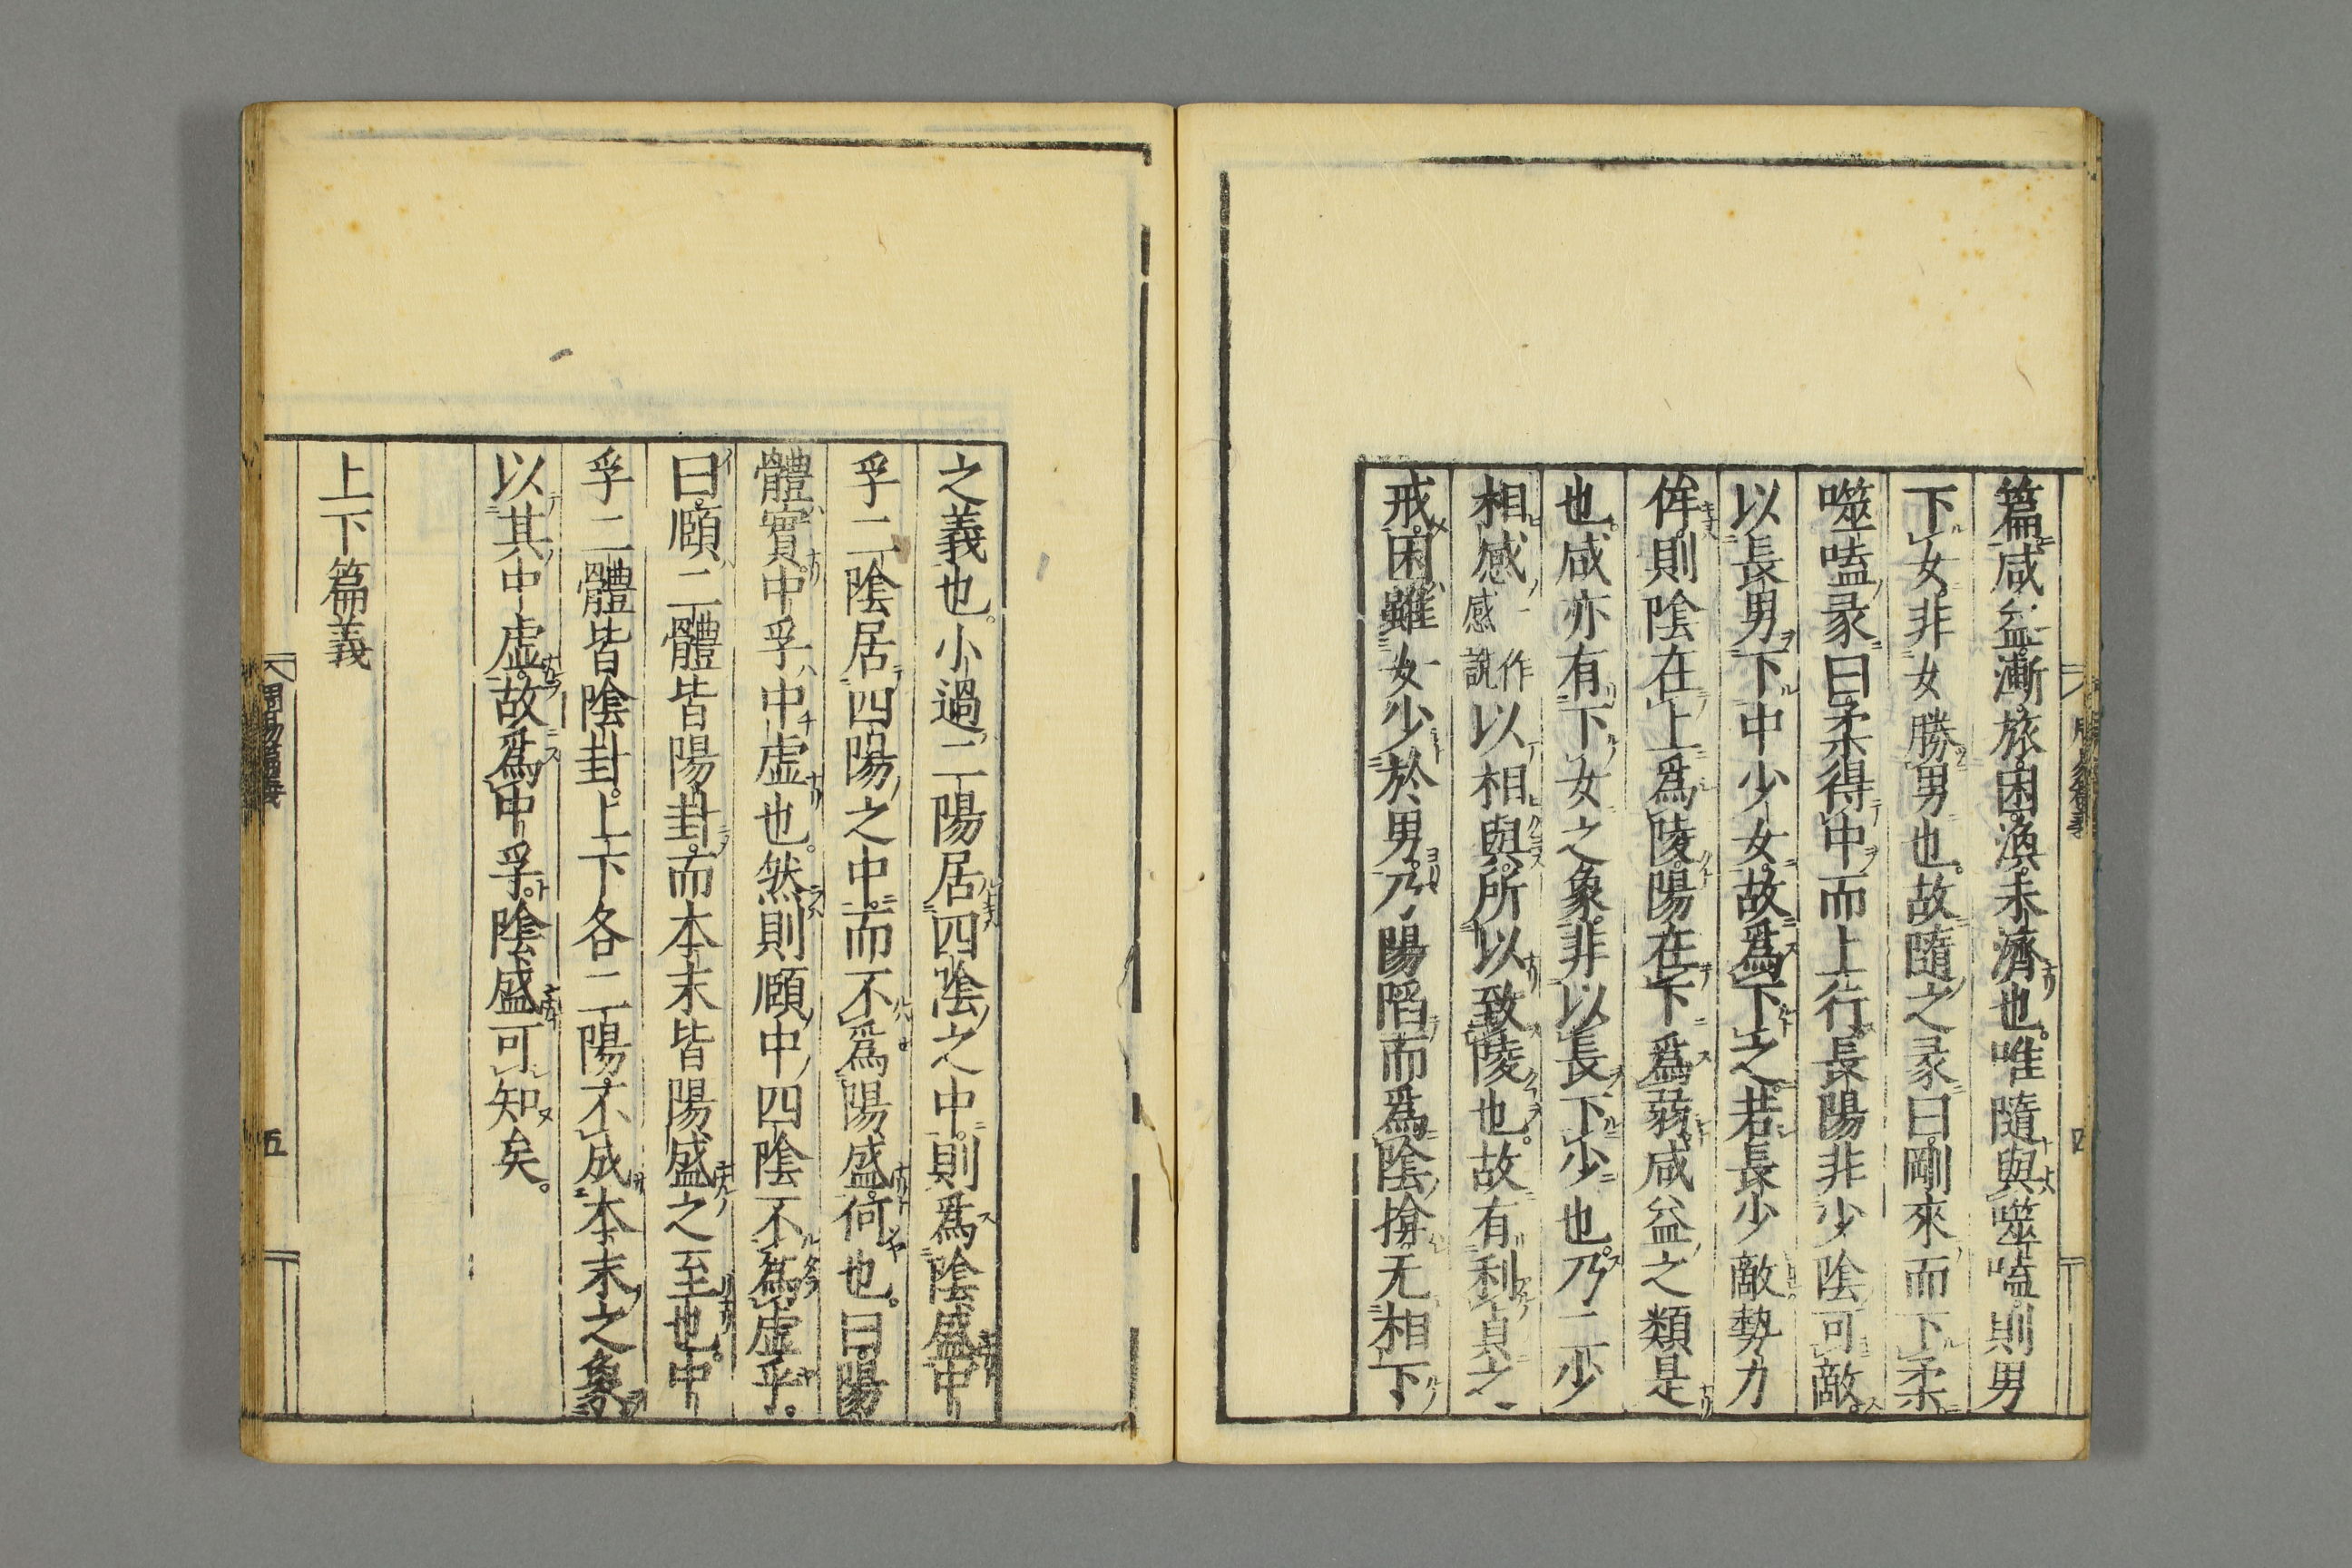 篇咸益漸旅困渙未濟也唯隨與噬嗑則男
下女非女勝男也故隨之彖曰剛來而下柔
噬嗑彖曰柔得中而上行長陽非少陰可敵
以長男下中少女故爲下之若長少敵勢力
侔則陰在上爲陵陽在下爲弱咸益之類是
也咸亦有下女之象非以長下少也乃二少
相感感一作說以相與所以致陵也故有利貞之
戒困雖女少於男乃陽陷而爲陰揜无相下
之義也小過二陽居四陰之中則爲陰盛中
孚二陰居四陽之中而不爲陽盛何也曰陽
體實中孚中虛也然則頤中四陰不爲虛乎
曰頤二體皆陽卦而本末皆陽盛之至也中
孚二體皆陰卦上下各二陽不成本末之象
以其中虛故爲中孚陰盛可知矣
上下篇義
五